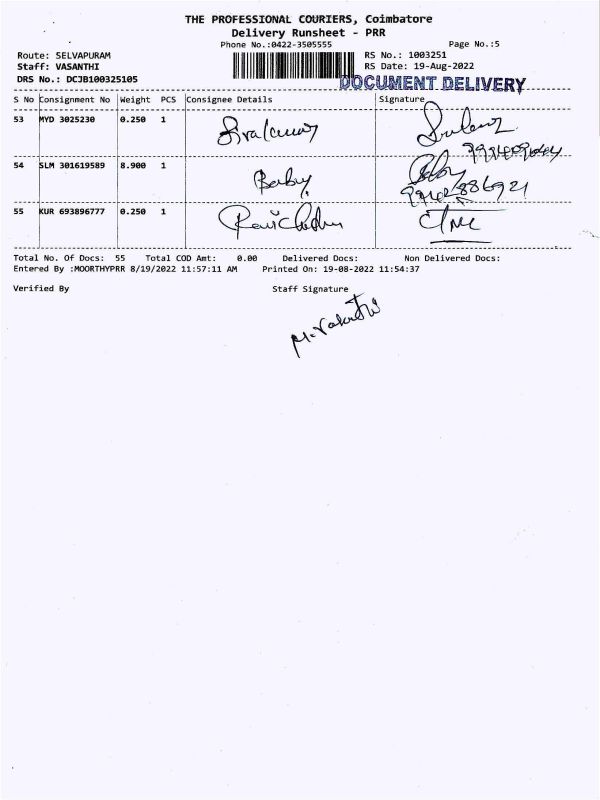 THE PROFESSIONAL COURIERS, Coimbatore
Delivery Runsheet - PRR
Phone No.:0422-3505555
Page No.:5
Route: SELVAPURAM
RS No.: 1003251
Staff: VASANTHI
RS Date: 19-Aug-2022
DRS No.: DCJB100325105
DOCUMENT DELIVERY
S No Consignment No Weight PCS Consignee Details Signature
53 MYD 3025230 0.250 1 Sivakumar
54 SLM 301619589 8.900 1 Baby
55 KUR 693896777 0.250 1
Total No. Of Docs: 55 Total COD Amt: 0.00 Delivered Docs: Non Delivered Docs:
Entered By :MOORTHYPRR 8/19/2022 11:57:11 AM Printed On: 19-08-2022 11:54:37
Verified By Staff Signature
M. Vasanthi